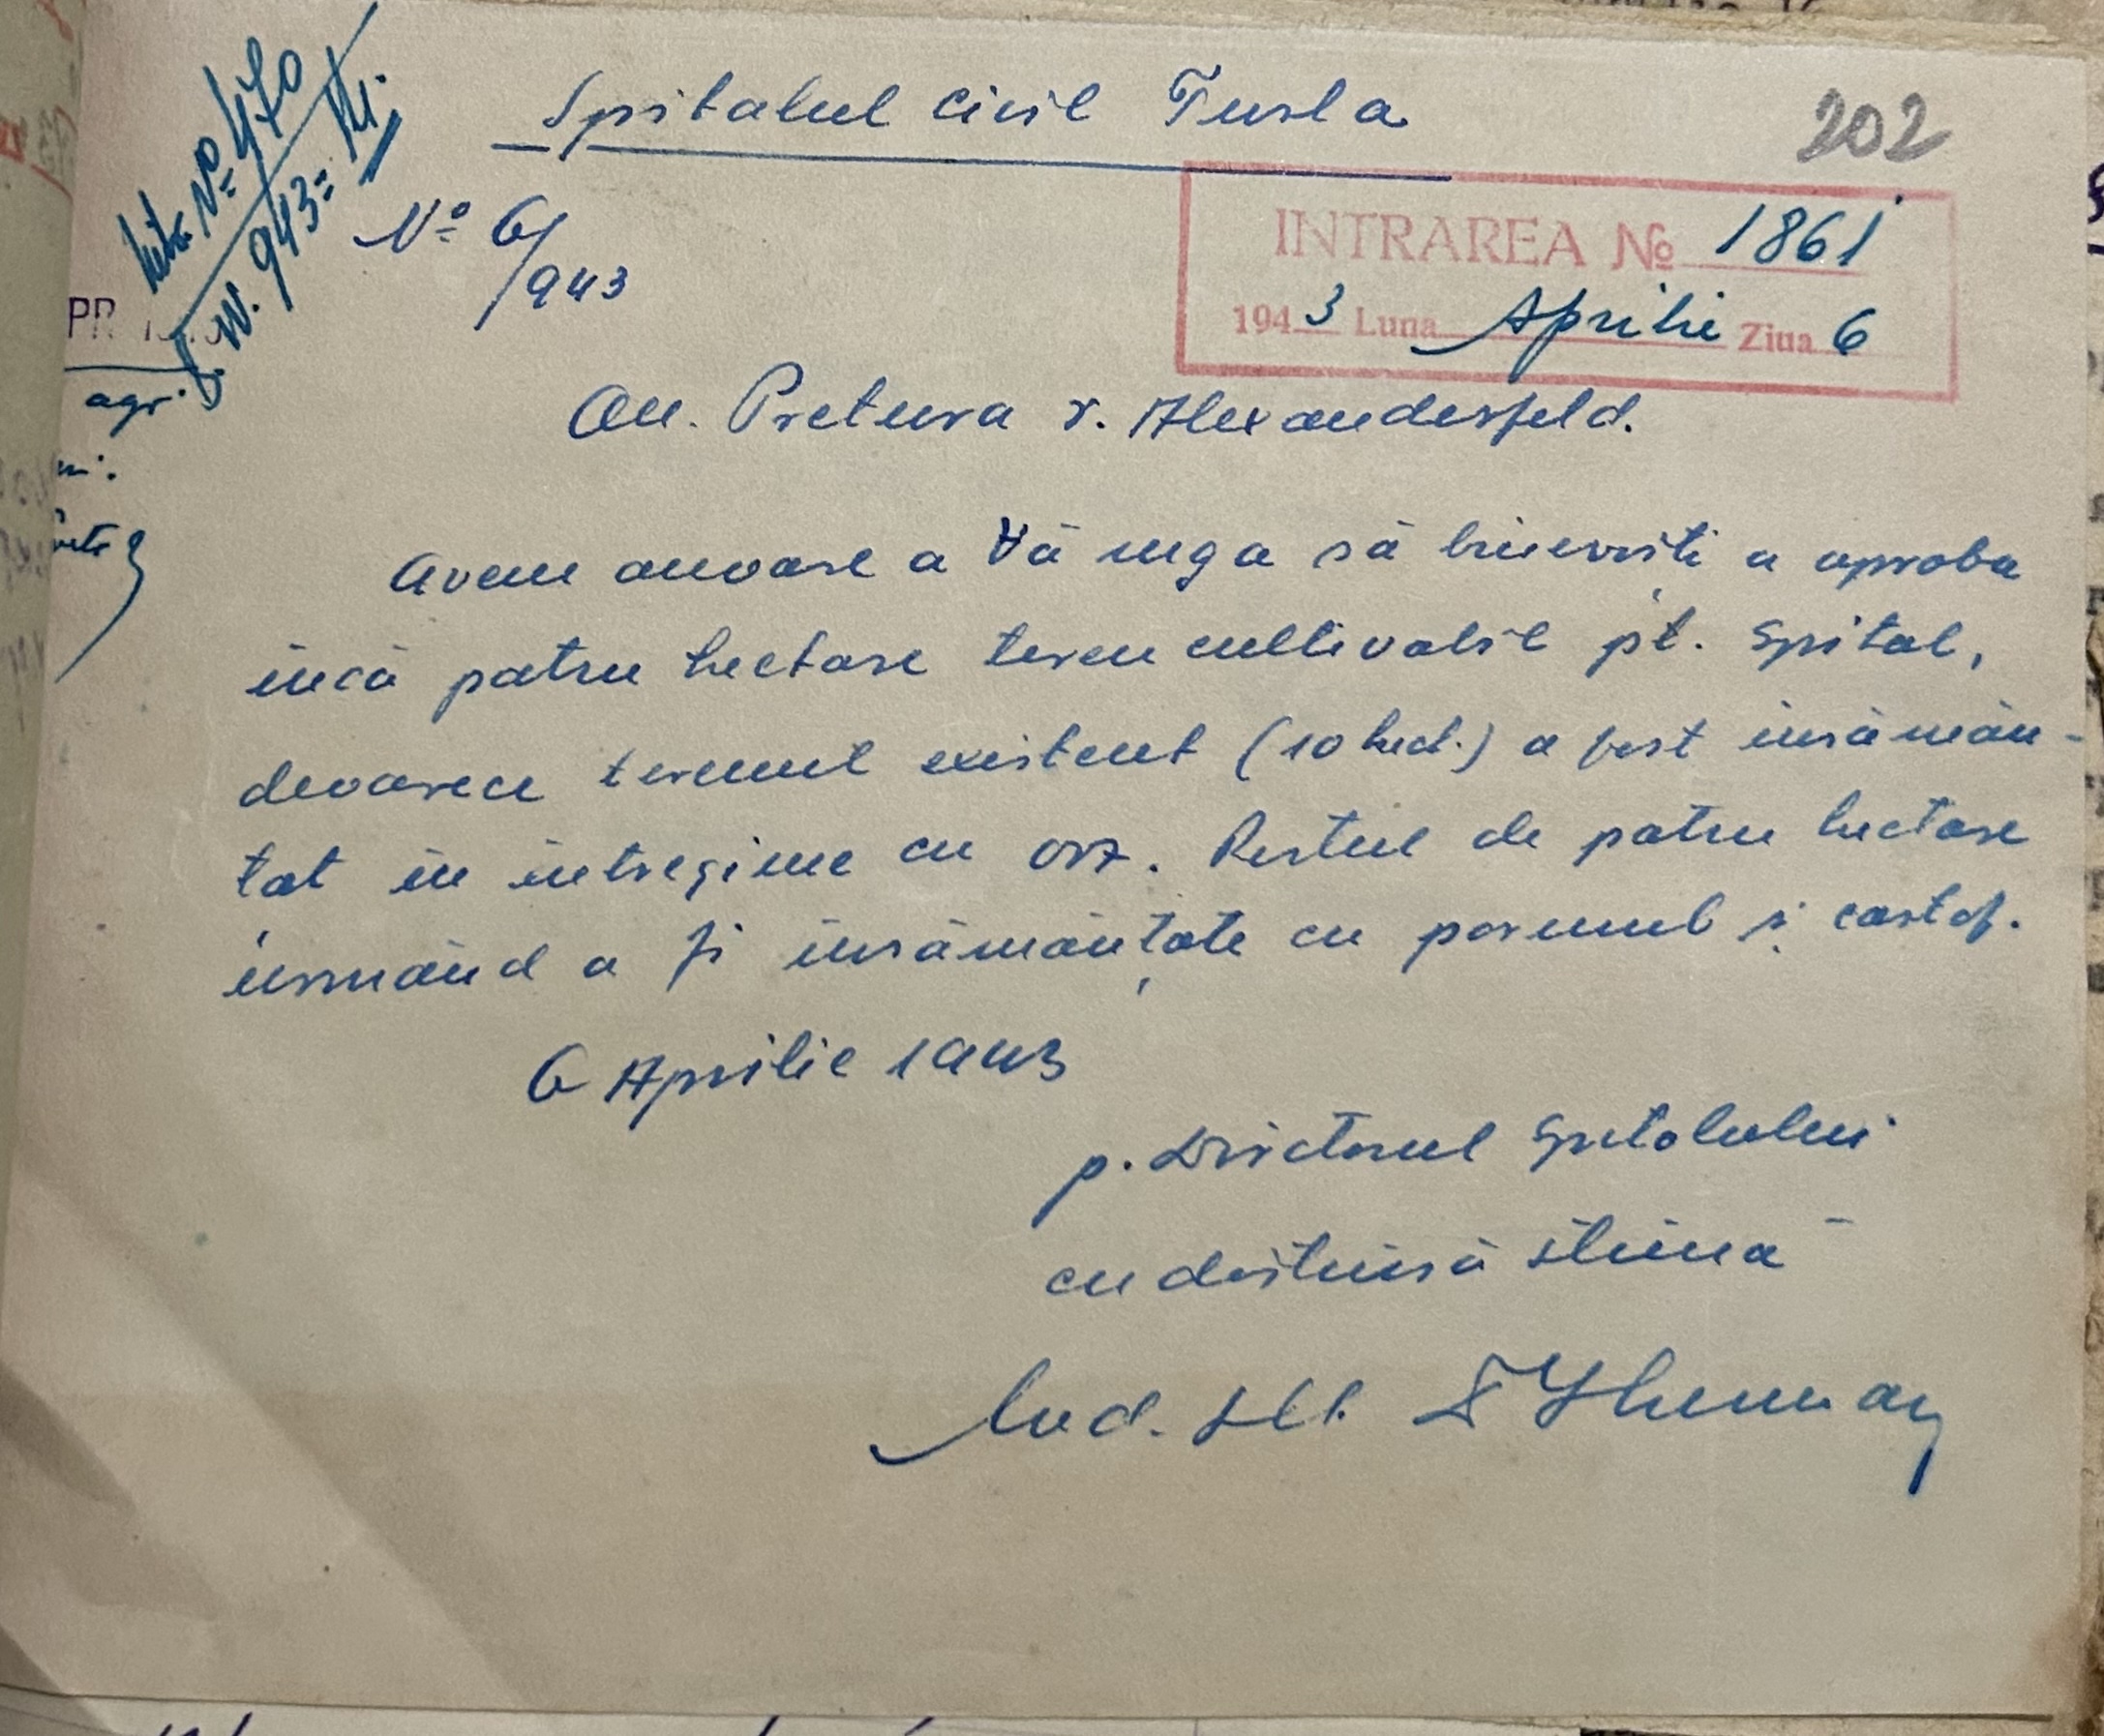 Spitalul civil Tusla
202
No 6/943
INTRAREA No 1861
1943 Luna Aprilie Ziua 6
No 470
943
agr.
On. Pretura r. Alexanderfeld.
Avem onoare a Vă ruga să binevoiti a aproba
încă patru hectare teren cultivabil pt. Spital,
deoarece terenul existent (10 hect.) a fost însămân-
tat în întregime cu orz. Restul de patru hectare
urmând a fi însămânțate cu porumb și cartof.
6 Aprilie 1943
p. Directorul Spitalului
cu distinsă stimă